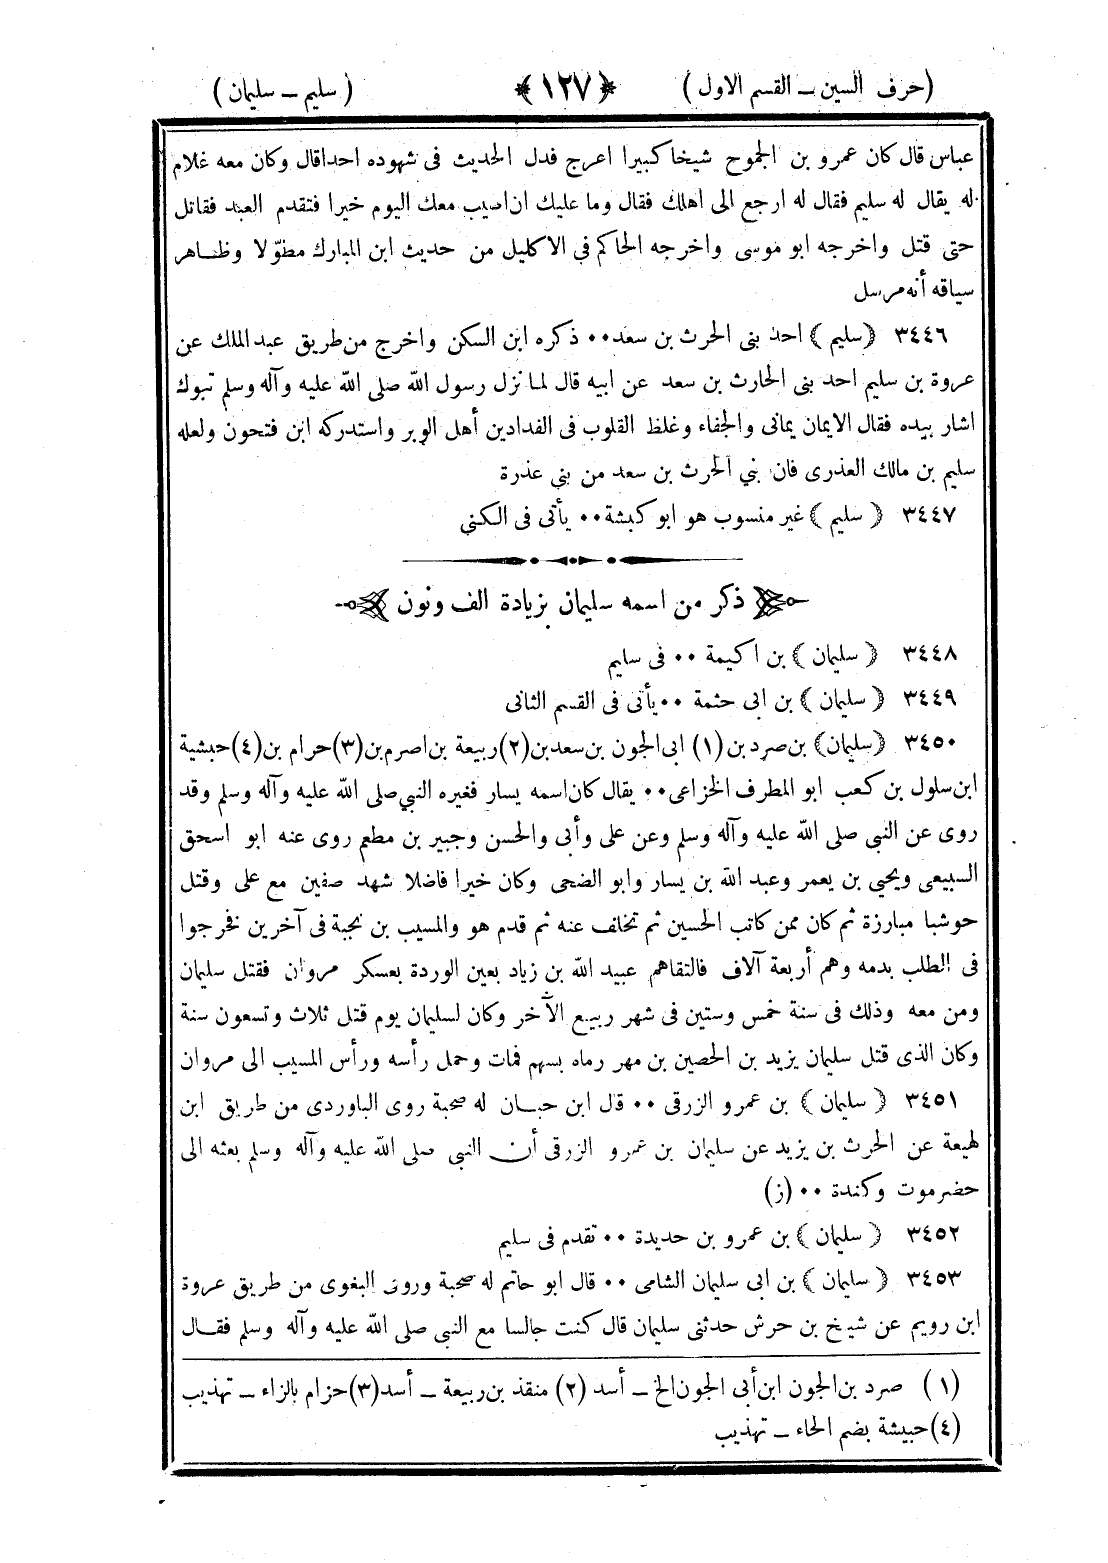 (حرف السين ــ القسم الاول) ﴿١٢٧﴾ (سليم ــ سليمان)
عباس قال كان عمرو بن الجموح شيخا كبيرا اعرج فدل الحديث فى شهوده احدا قال وكان معه غلام
له يقال له سليم فقال له ارجع الى اهلك فقال وما عليك ان اصيب معك اليوم خيرا فتقدم العبد فقاتل
حتى قتل واخرجه ابو موسى واخرجه الحاكم فى الاكليل من حديث ابن المبارك مطوّلا وظاهر
سياقه أنه مرسل
٣٤٤٦ (سليم) احد بنى الحرث بن سعد٠٠ ذكره ابن السكن واخرج من طريق عبد الملك عن
عروة بن سليم احد بنى الحارث بن سعد عن ابيه قال لما نزل رسول الله صلى الله عليه وآله وسلم تبوك
اشار بيده فقال الايمان يمانى والجفاء وغلظ القلوب فى الفدادين أهل الوبر واستدركه ابن فتحون ولعله
سليم بن مالك العذرى فان بني الحرث بن سعد من بني عذرة
٣٤٤٧ (سليم) غير منسوب هو ابو كبشة٠٠ يأتى فى الكنى
ذكر من اسمه سليمان بزيادة الف ونون
٣٤٤٨ (سليمان) بن اكيمة ٠٠ فى سليم
٣٤٤٩ (سليمان) بن ابى حثمة ٠٠ يأتى فى القسم الثانى
٣٤٥٠ (سليمان) بن صرد بن (١) ابى الجون بن سعد بن (٢) ربيعة بن اصرم بن (٣) حرام بن (٤) حبشية
ابن سلول بن كعب ابو المطرف الخزاعى٠٠ يقال كان اسمه يسار فغيره النبي صلى الله عليه وآله وسلم وقد
روى عن النبى صلى الله عليه وآله وسلم وعن على وأبى والحسن وجبير بن مطعم روى عنه ابو اسحق
السبيعى ويحيى بن يعمر وعبد الله بن يسار وابو الضحى وكان خيرا فاضلا شهد صفين مع على وقتل
حوشبا مبارزة ثم كان ممن كاتب الحسين ثم تخلف عنه ثم قدم هو والمسيب بن نجبة فى آخرين فخرجوا
فى الطلب بدمه وهم أربعة آلاف فالتقاهم عبيد الله بن زياد بعين الوردة بعسكر مروان فقتل سليمان
ومن معه وذلك فى سنة خمس وستين فى شهر ربيع الآخر وكان لسليمان يوم قتل ثلاث وتسعون سنة
وكان الذى قتل سليمان يزيد بن الحصين بن مهر رماه بسهم فمات وحمل رأسه ورأس المسيب الى مروان
٣٤٥١ (سليمان) بن عمرو الزرقى ٠٠ قال ابن حبان له صحبة روى الباوردى من طريق ابن
لهيعة عن الحرث بن يزيد عن سليمان بن عمرو الزرقى أن النبى صلى الله عليه وآله وسلم بعثه الى
حضرموت وكندة ٠٠ (ز)
٣٤٥٢ (سليمان) بن عمرو بن حديدة ٠٠ تقدم فى سليم
٣٤٥٣ (سليمان) بن ابى سليمان الشامى ٠٠ قال ابو حاتم له صحبة وروى البغوى من طريق عروة
ابن رويم عن شيخ بن حرش حدثنى سليمان قال كنت جالسا مع النبى صلى الله عليه وآله وسلم فقال
(١) صرد بن الجون ابن أبى الجون الخ ــ أسد (٢) منقذ بن ربيعة ــ أسد (٣) حزام بالزاء ــ تهذيب
(٤) حبيشة بضم الحاء ــ تهذيب